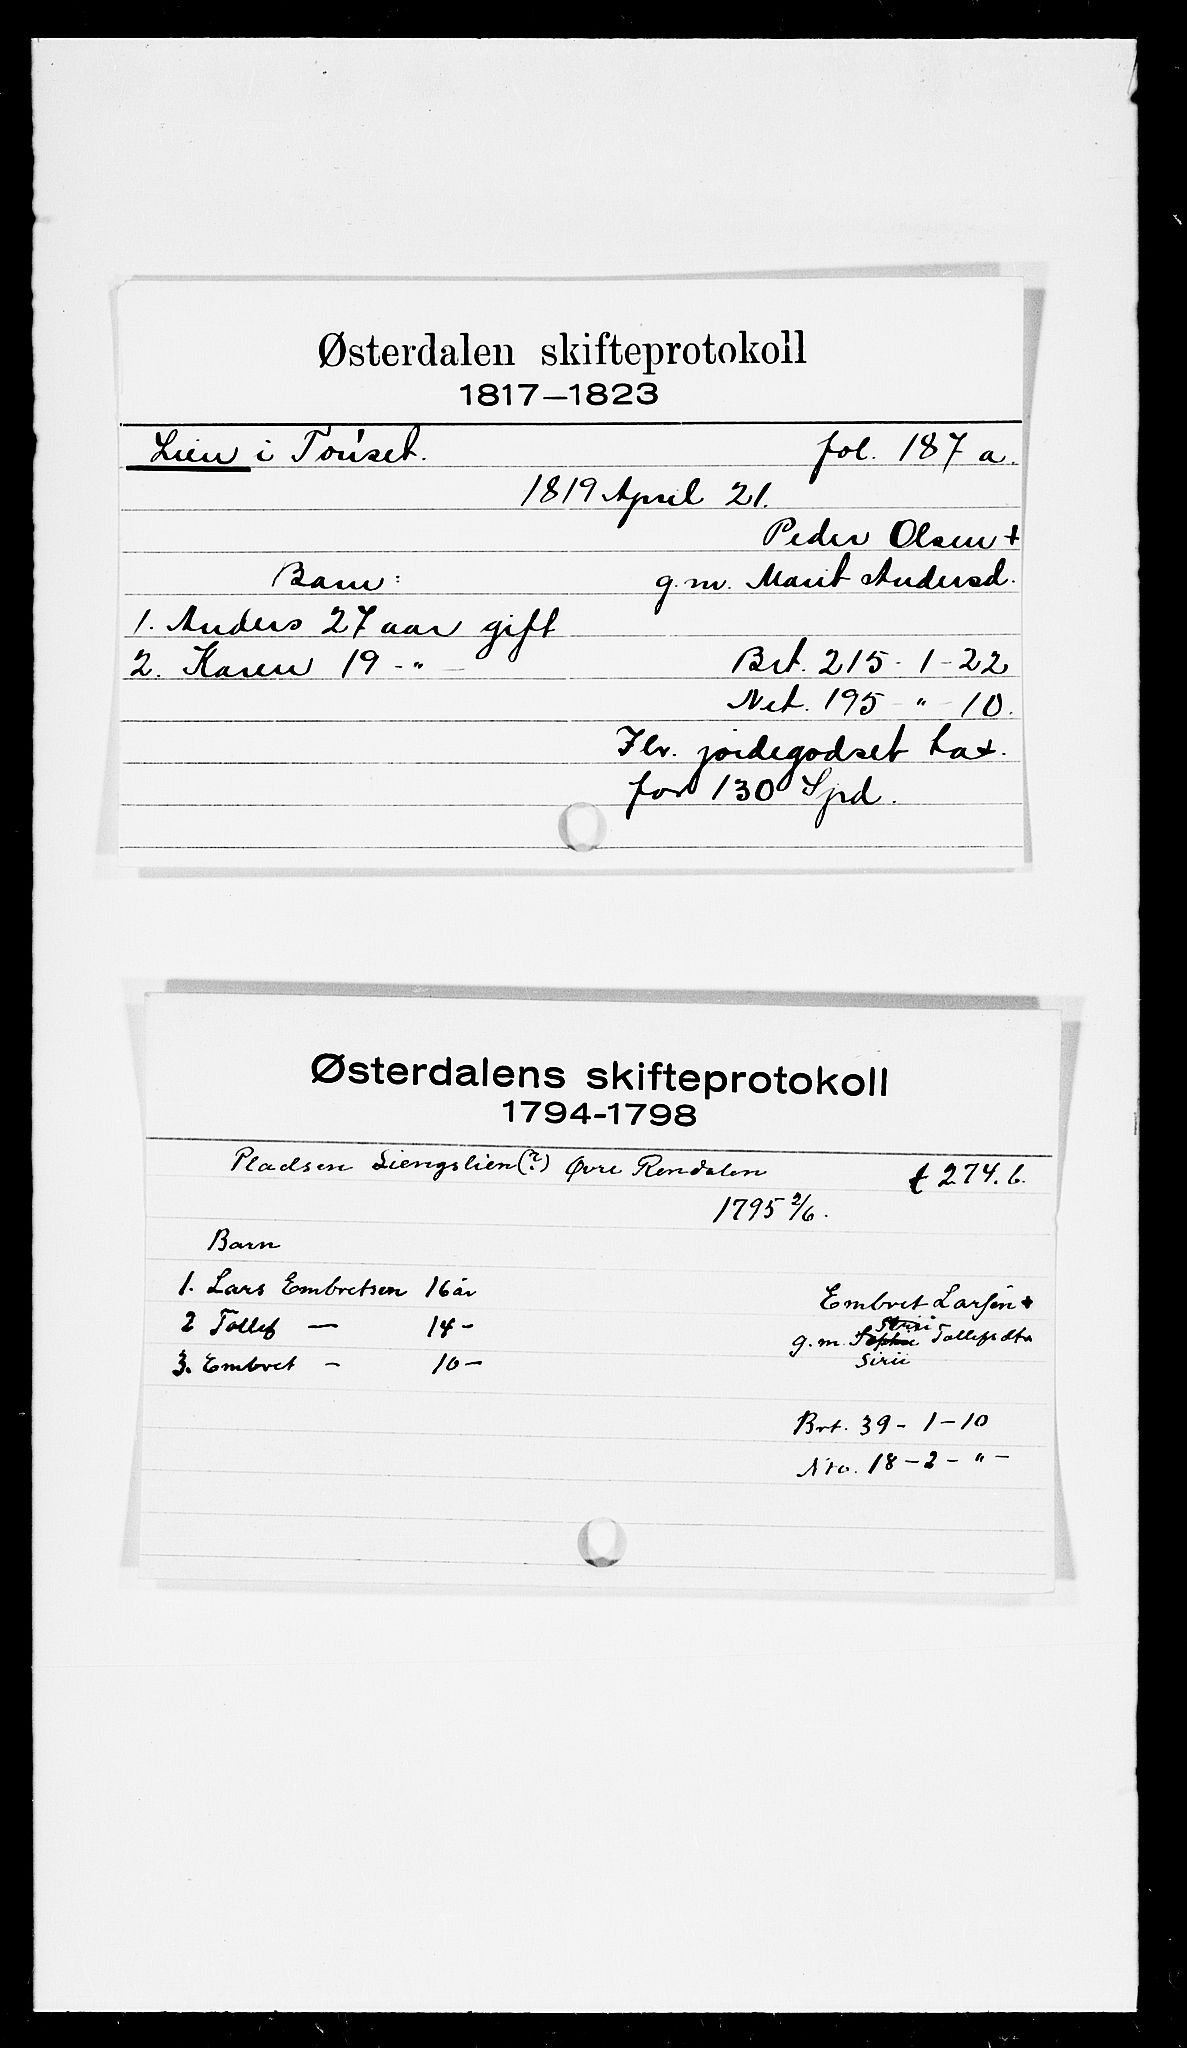 Østerdalen skifteprotokoll
1817–1823
Lien i Tønset. fol. 187 a.
1819 April 21.
Peder Olsen +
Barn: g.m. Marit Andersd.
1. Anders 27 aar gift
2. Karen 19 - " - Brt. 215 - 1 - 22
Net. 195 - " - 10.
jordegodset tax.
for 130 Spd.
Østerdalens skifteprotokoll
1794-1798
Pladsen Liengslien (?) Øvre Rendalen f 274. b.
1795 2/6.
Barn
1. Lars Embretsen 16 år Embret Larsen +
2 Tollef — 14 - g.m. Tollefsdtr
Sirii
3. Embret - 10 -
Brt. 39 - 1 - 10
Nto. 18 - 2 - " -